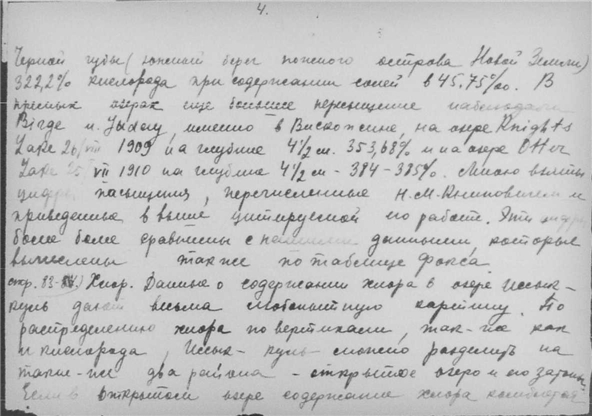 4.
Черной губы (южный берег южного острова Новой Земли)
322,2% кислорода при содержании солей в 45.75‰. В
пресных озерах еще большее пересыщение наблюдали
Birge и Juday, именно в Висконсине, на озере Knights
Lake 26/VIII 1909 на глубине 4½ см. 353,68% и на озере Otter
Lake VII 1910 на глубине 4½ см - 384 - 385%. Мною взяты
цифры насыщения, перечисленные Н.М. Книповичем и
приведенные в выше цитируемой его работе. Эти цифры
более сравнимы с нашими данными, которые
вычислены также по таблице Фокса.
стр. 83- Хлор. Данные о содержании хлора в озере Иссык-
куль дают весьма любопытную картину. По
распределению хлора по вертикали, так-же как
и кислорода, Иссык-куль можно разделить на
такие-же два района - открытое озеро и его затоны
Если в открытом озере содержание хлора